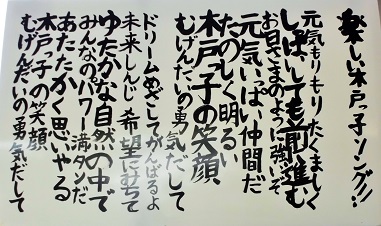 楽しい木戸っ子ソング!!
元気もりもりたくましく
しっぱいしても前へ進む
お日さまのように強いぞ
元気いっぱい仲間だ
たのしく明るい
木戸っ子の笑顔、
むげんだいの勇気だして
ドリームめざしてがんばるよ
未来しんじ希望にみちて
ゆたかな自然の中で
みんなのパワー満タンだ
あたたかく思いやる
木戸っ子の笑顔、
むげんだいの勇気だして